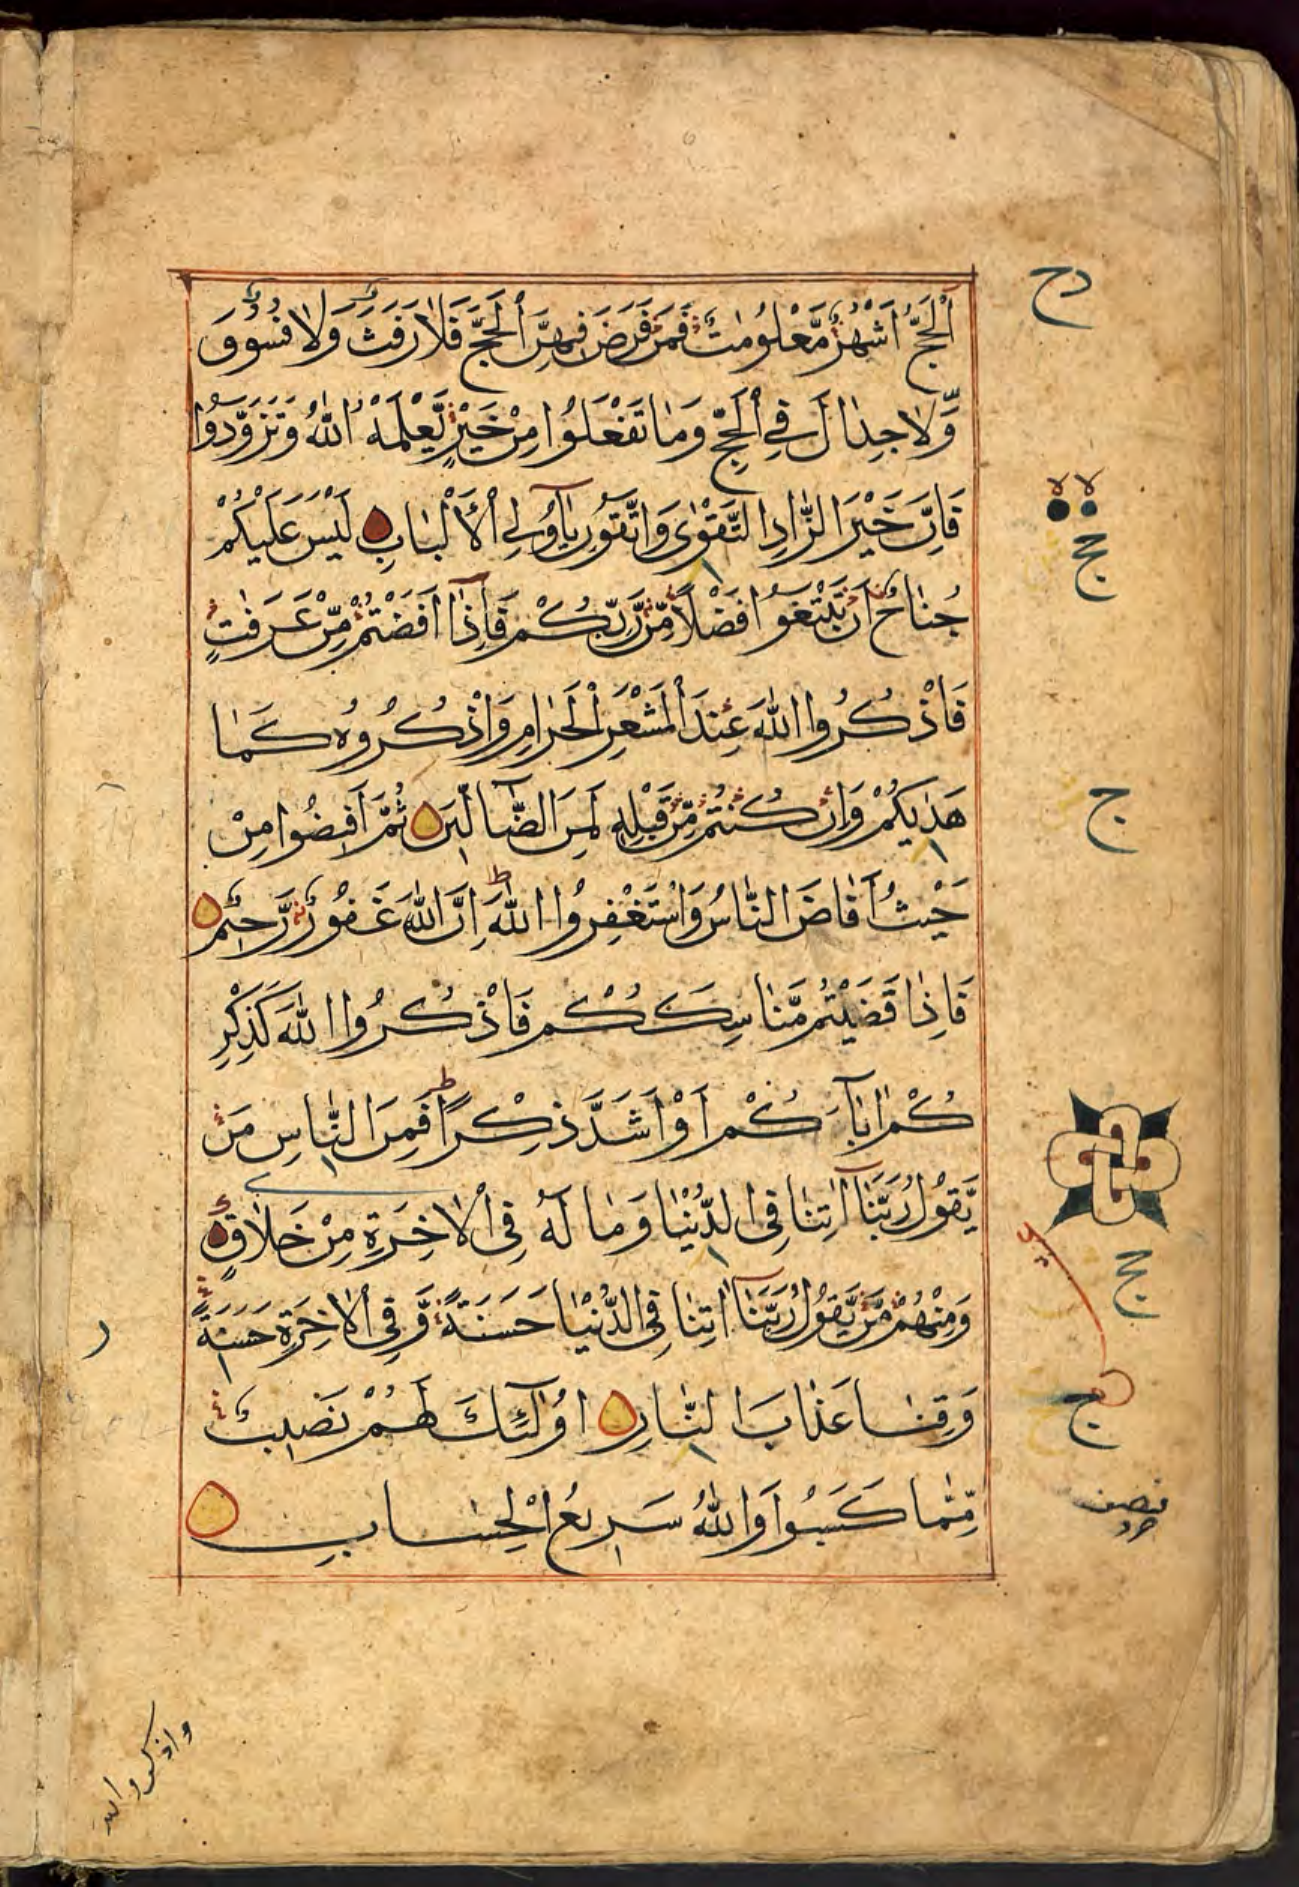 اَلْحَجُّ اَشْهُرٌ مَّعْلُومٰتٌ فَمَنْ فَرَضَ فِيهِنَّ الْحَجَّ فَلَا رَفَثَ وَلَا فُسُوقَ
وَّلَا جِدَالَ فِي الْحَجِّ وَمَا تَفْعَلُوا مِنْ خَيْرٍ يَّعْلَمْهُ اللّٰهُ وَتَزَوَّدُوا
فَاِنَّ خَيْرَ الزَّادِ التَّقْوٰى وَاتَّقُونِ يٰٓاُولِي الْاَلْبَابِ لَيْسَ عَلَيْكُمْ
جُنَاحٌ اَنْ تَبْتَغُوا فَضْلًا مِّنْ رَّبِّكُمْ فَاِذَا اَفَضْتُمْ مِّنْ عَرَفٰتٍ
فَاذْكُرُوا اللّٰهَ عِنْدَ الْمَشْعَرِ الْحَرَامِ وَاذْكُرُوهُ كَمَا
هَدٰيكُمْ وَاِنْ كُنْتُمْ مِّنْ قَبْلِهٖ لَمِنَ الضَّآلِّينَ ثُمَّ اَفِيضُوا مِنْ
حَيْثُ اَفَاضَ النَّاسُ وَاسْتَغْفِرُوا اللّٰهَ ط اِنَّ اللّٰهَ غَفُورٌ رَّحِيمٌ
فَاِذَا قَضَيْتُمْ مَّنَاسِكَكُمْ فَاذْكُرُوا اللّٰهَ كَذِكْرِ
كُمْ اٰبَآءَكُمْ اَوْ اَشَدَّ ذِكْرًا ط فَمِنَ النَّاسِ مَنْ
يَّقُولُ رَبَّنَآ اٰتِنَا فِي الدُّنْيَا وَمَا لَهٗ فِي الْاٰخِرَةِ مِنْ خَلَاقٍ
وَمِنْهُمْ مَّنْ يَّقُولُ رَبَّنَآ اٰتِنَا فِي الدُّنْيَا حَسَنَةً وَّفِي الْاٰخِرَةِ حَسَنَةً
وَقِنَا عَذَابَ النَّارِ اُولٰٓئِكَ لَهُمْ نَصِيبٌ
مِّمَّا كَسَبُوا وَاللّٰهُ سَرِيعُ الْحِسَابِ
واذكروا الله
ج
نصف